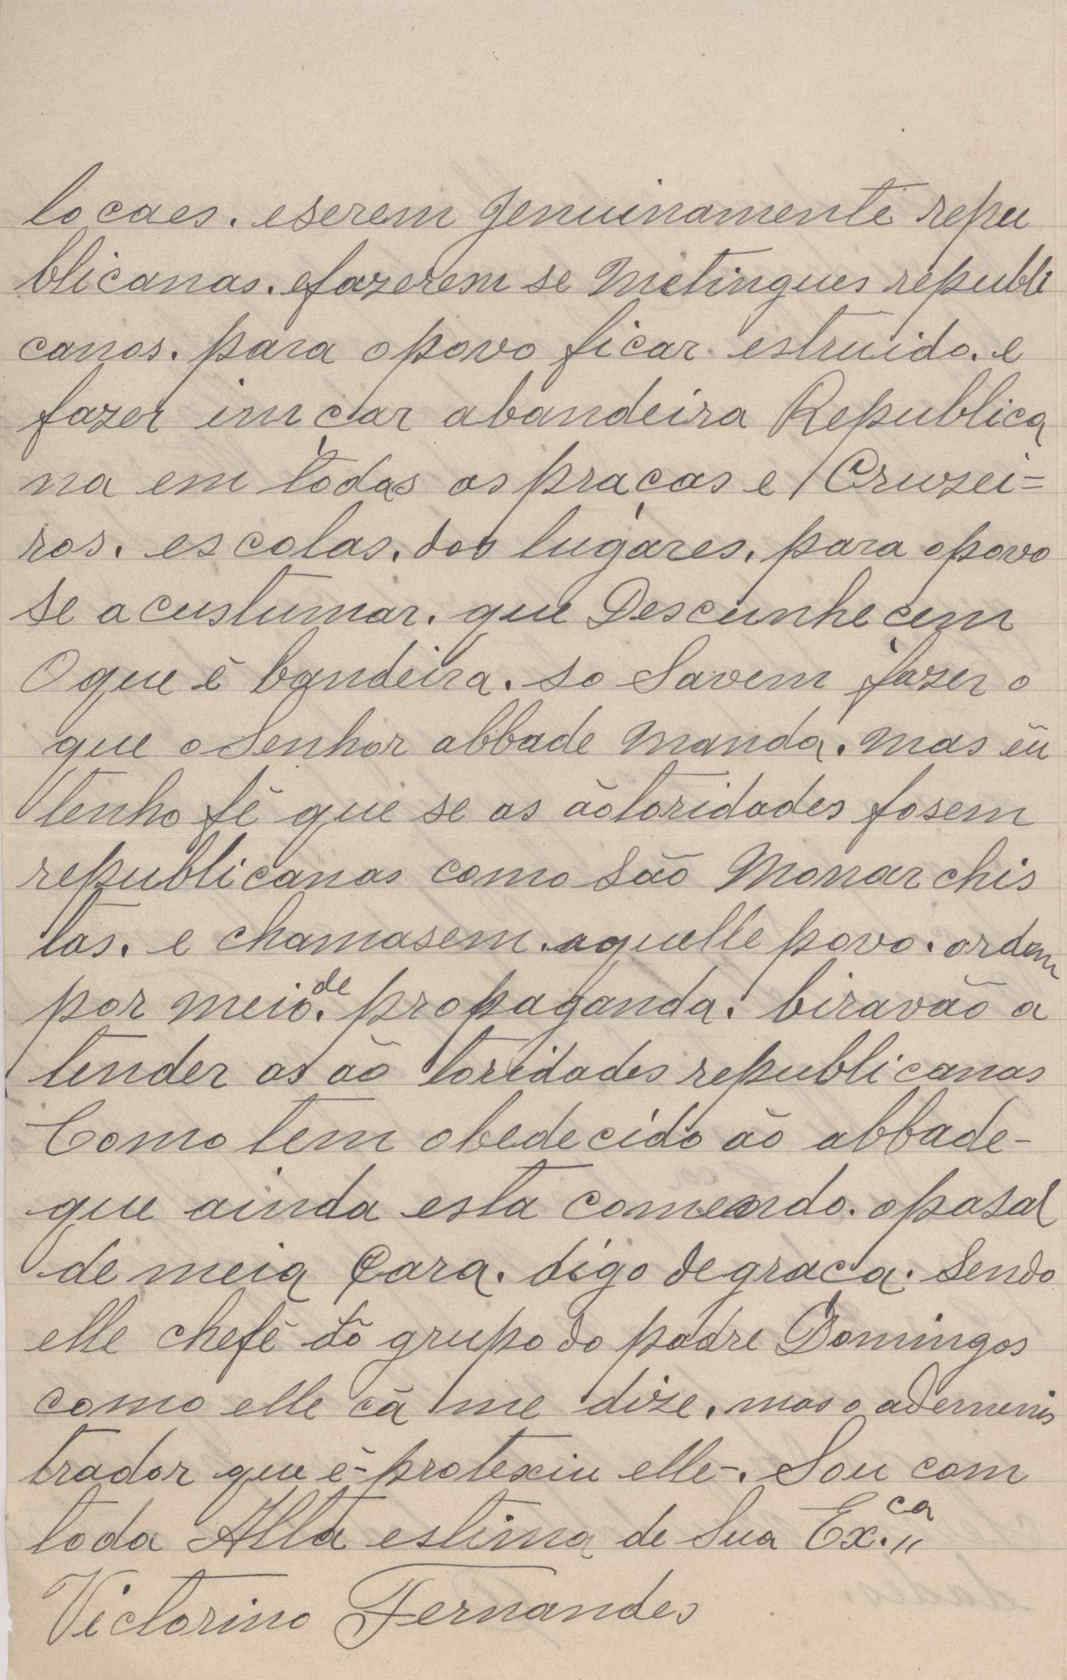 locaes. eserem genuinamente repu
blicanas. efazerem se Metingues republi
canos. para opovo ficar estruido. e
fazer imçar abandeira Republica
na em todas as praças e Cruzei=
ros. escolas. dos lugares. para opovo
se acustumar. que Descunhecem
O que é bandeira. so Savem fazer o
que o Senhor abbade manda. mas eu
tenho fé que se as aótoridades fosem
republicanas como são Monarchis
tas. e chamasem. aquelle povo. ordem
por meio. de propaganda. biravão a
tender as aó toridades republicanas
Como tem obedecido aó abbade-
que ainda esta comendo. opasal
de meia Cara. digo de graça. sendo
elle chefe dó grupo do padre Domingos
como elle cá me dize. mas o ademinis
trador que é- protexiu elle-. Sou com
toda Alta estima de Sua Ex.ca
Victorino Fernandes